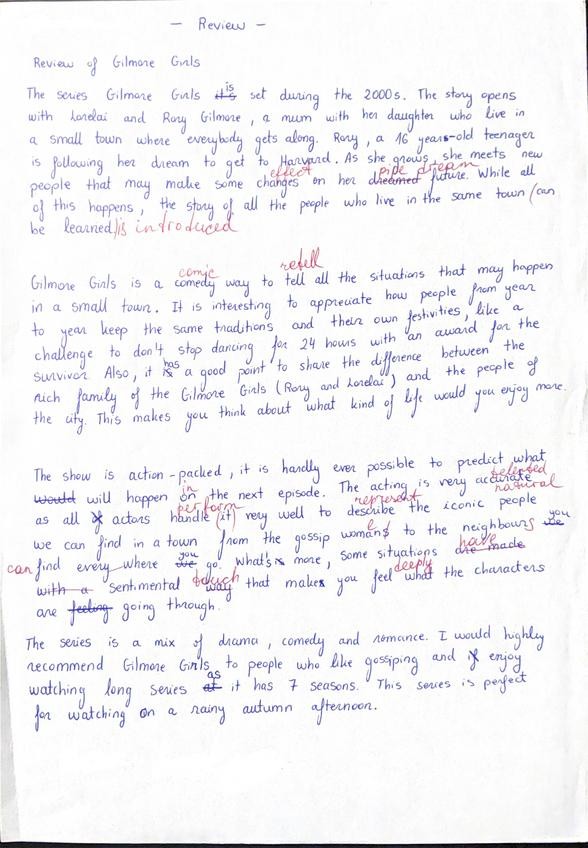 - Review -
Review of Gilmore Girls
is
The series Gilmore Girls it's set during the 2000s. The story opens
with Lorelai and Rory Gilmore, a mum with her daughter who live in
a small town where everybody gets along. Rory, a 16 years-old teenager
is following her dream to get to Harvard. As she grows, she meets new
effect pipe dream
people that may make some changes on her dreamed future. While all
of this happens, the story of all the people who live in the same town (can
be learned) is introduced
comic retell
Gilmore Girls is a comedy way to tell all the situations that may happen
in a small town. It is interesting to appreciate how people from year
to year keep the same traditions and their own festivities, like a
challenge to don't stop dancing for 24 hours with an award for the
has
survivor. Also, it is a good point to share the difference between the
rich family of the Gilmore Girls (Rory and Lorelai) and the people of
the city. This makes you think about what kind of life would you enjoy more.
The show is action-packed, it is hardly ever possible to predict what
in selected
would will happen on the next episode. The acting is very accurate
perform represent natural
as all actors handle (it) very well to describe the iconic people
e you
we can find in a town from the gossip womans to the neighbours we
you have
can find every where we go. What's more, some situations are made
touch deeply
with a sentimental way that makes you feel what the characters
are feeling going through.
The series is a mix of drama, comedy and romance. I would highly
recommend Gilmore Girls to people who like gossiping and enjoy
as
watching long series at it has 7 seasons. This series is perfect
for watching on a rainy autumn afternoon.